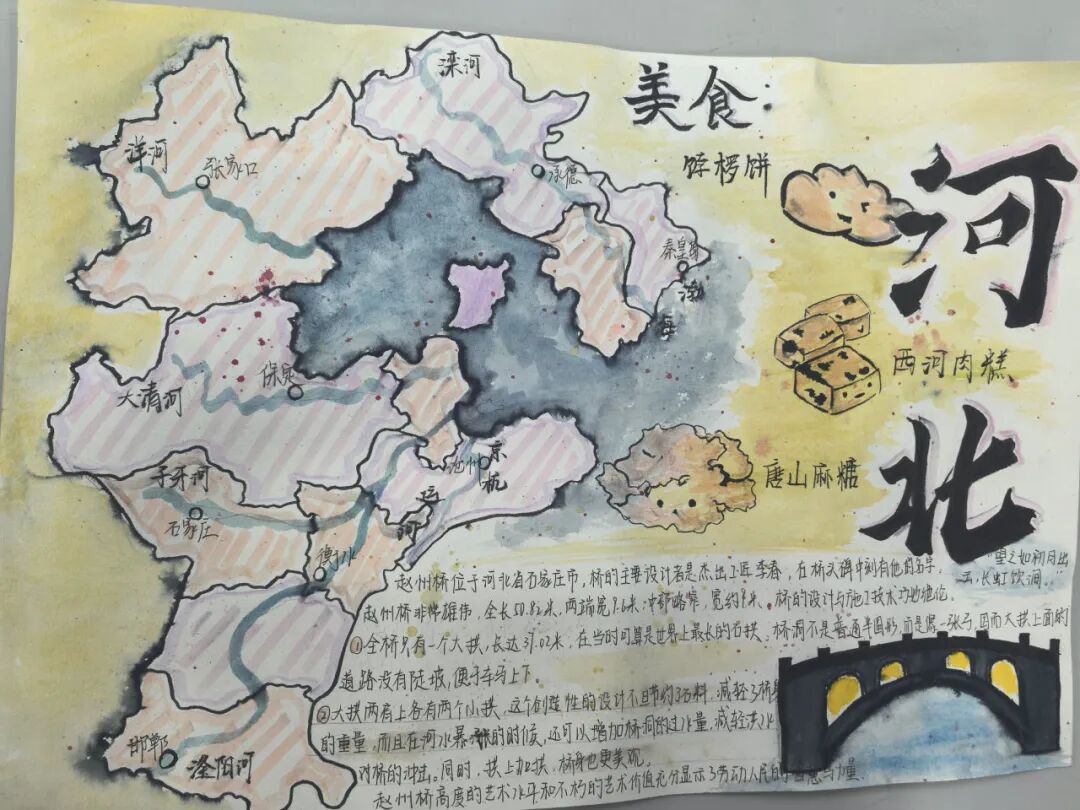 滦河
洋河
张家口
承德
秦皇岛
渤
海
大清河
保定
京
杭
运
河
沧州
子牙河
石家庄
衡水
邯郸
滏阳河
美食:
饽椤饼
河北
西河肉糕
唐山麻糖
赵州桥位于河北省石家庄市，桥的主要设计者是杰出工匠李春，在桥头碑中刻有他的名字。
"望之如初月出
云,长虹饮涧
赵州桥非常雄伟，全长50.82米，两端宽9.6米，中部略窄，宽约9米，桥的设计与施工技术巧
①全桥只有一个大拱，长达37.02米，在当时可算是世界上最长的石拱。桥洞不是普通半圆形，而是像一张弓，因而大拱上面的
道路没有陡坡，便于车马上下。
②大拱两肩上各有两个小拱。这个创造性的设计不但节约了石料，减轻了桥身
的重量，而且在河水暴涨的时候，还可以增加桥洞的过水量，减轻洪水
对桥的冲击。同时，拱上加拱，桥身也更美观。
赵州桥高度的艺术水平和不朽的艺术价值充分显示了劳动人民的智慧与力量